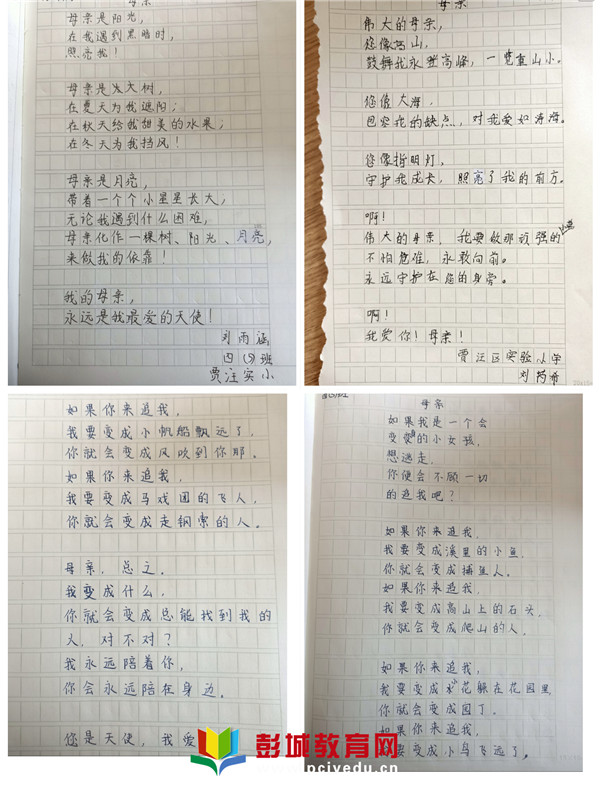 母亲
母亲是阳光，
在我遇到黑暗时，
照亮我！
母亲是大树，
在夏天为我遮阳；
在秋天给我甜美的水果；
在冬天为我挡风！
母亲是月亮，
带着一个个小星星长大，
无论我遇到什么困难，
母亲化作一棵树、阳光、月亮，
来做我的依靠！
我的母亲，
永远是我最爱的天使！
刘雨涵
四（5）班
贾汪实小
母亲
伟大的母亲，
您像高山，
鼓舞我永登高峰，一览直山小。
您像大海，
包容我的缺点，对我爱如涛海。
您像指明灯，
守护我成长，照亮了我的前方。
啊！
伟大的母亲，我要做那顽强的
不怕危难，永敢向前。
永远守护在您的身旁。
啊！
我爱你！母亲！
贾汪区实验小学
刘芮希
如果你来追我，
我要变成小帆船飘远了，
你就会变成风吹到你那。
如果你来追我，
我要变成马戏团的飞人，
你就会变成走钢索的人。
母亲，总之。
我变成什么，
你就会变成总能找到我的
人，对不对？
我永远陪着你，
你会永远陪在身边。
您是天使，我爱
四(5)班
母亲
如果我是一个会
变变的小女孩，
想逃走，
你便会不顾一切
的追我吧？
如果你来追我，
我要变成溪里的小鱼，
你就会变成捕鱼人。
如果你来追我，
我要变成高山上的石头，
你就会变成爬山的人。
如果你来追我，
我要变成小花躲在花园里
你就会变成园丁。
如果你来追我，
要变成小鸟飞远了。
彭城教育网
pcjyedu.cn